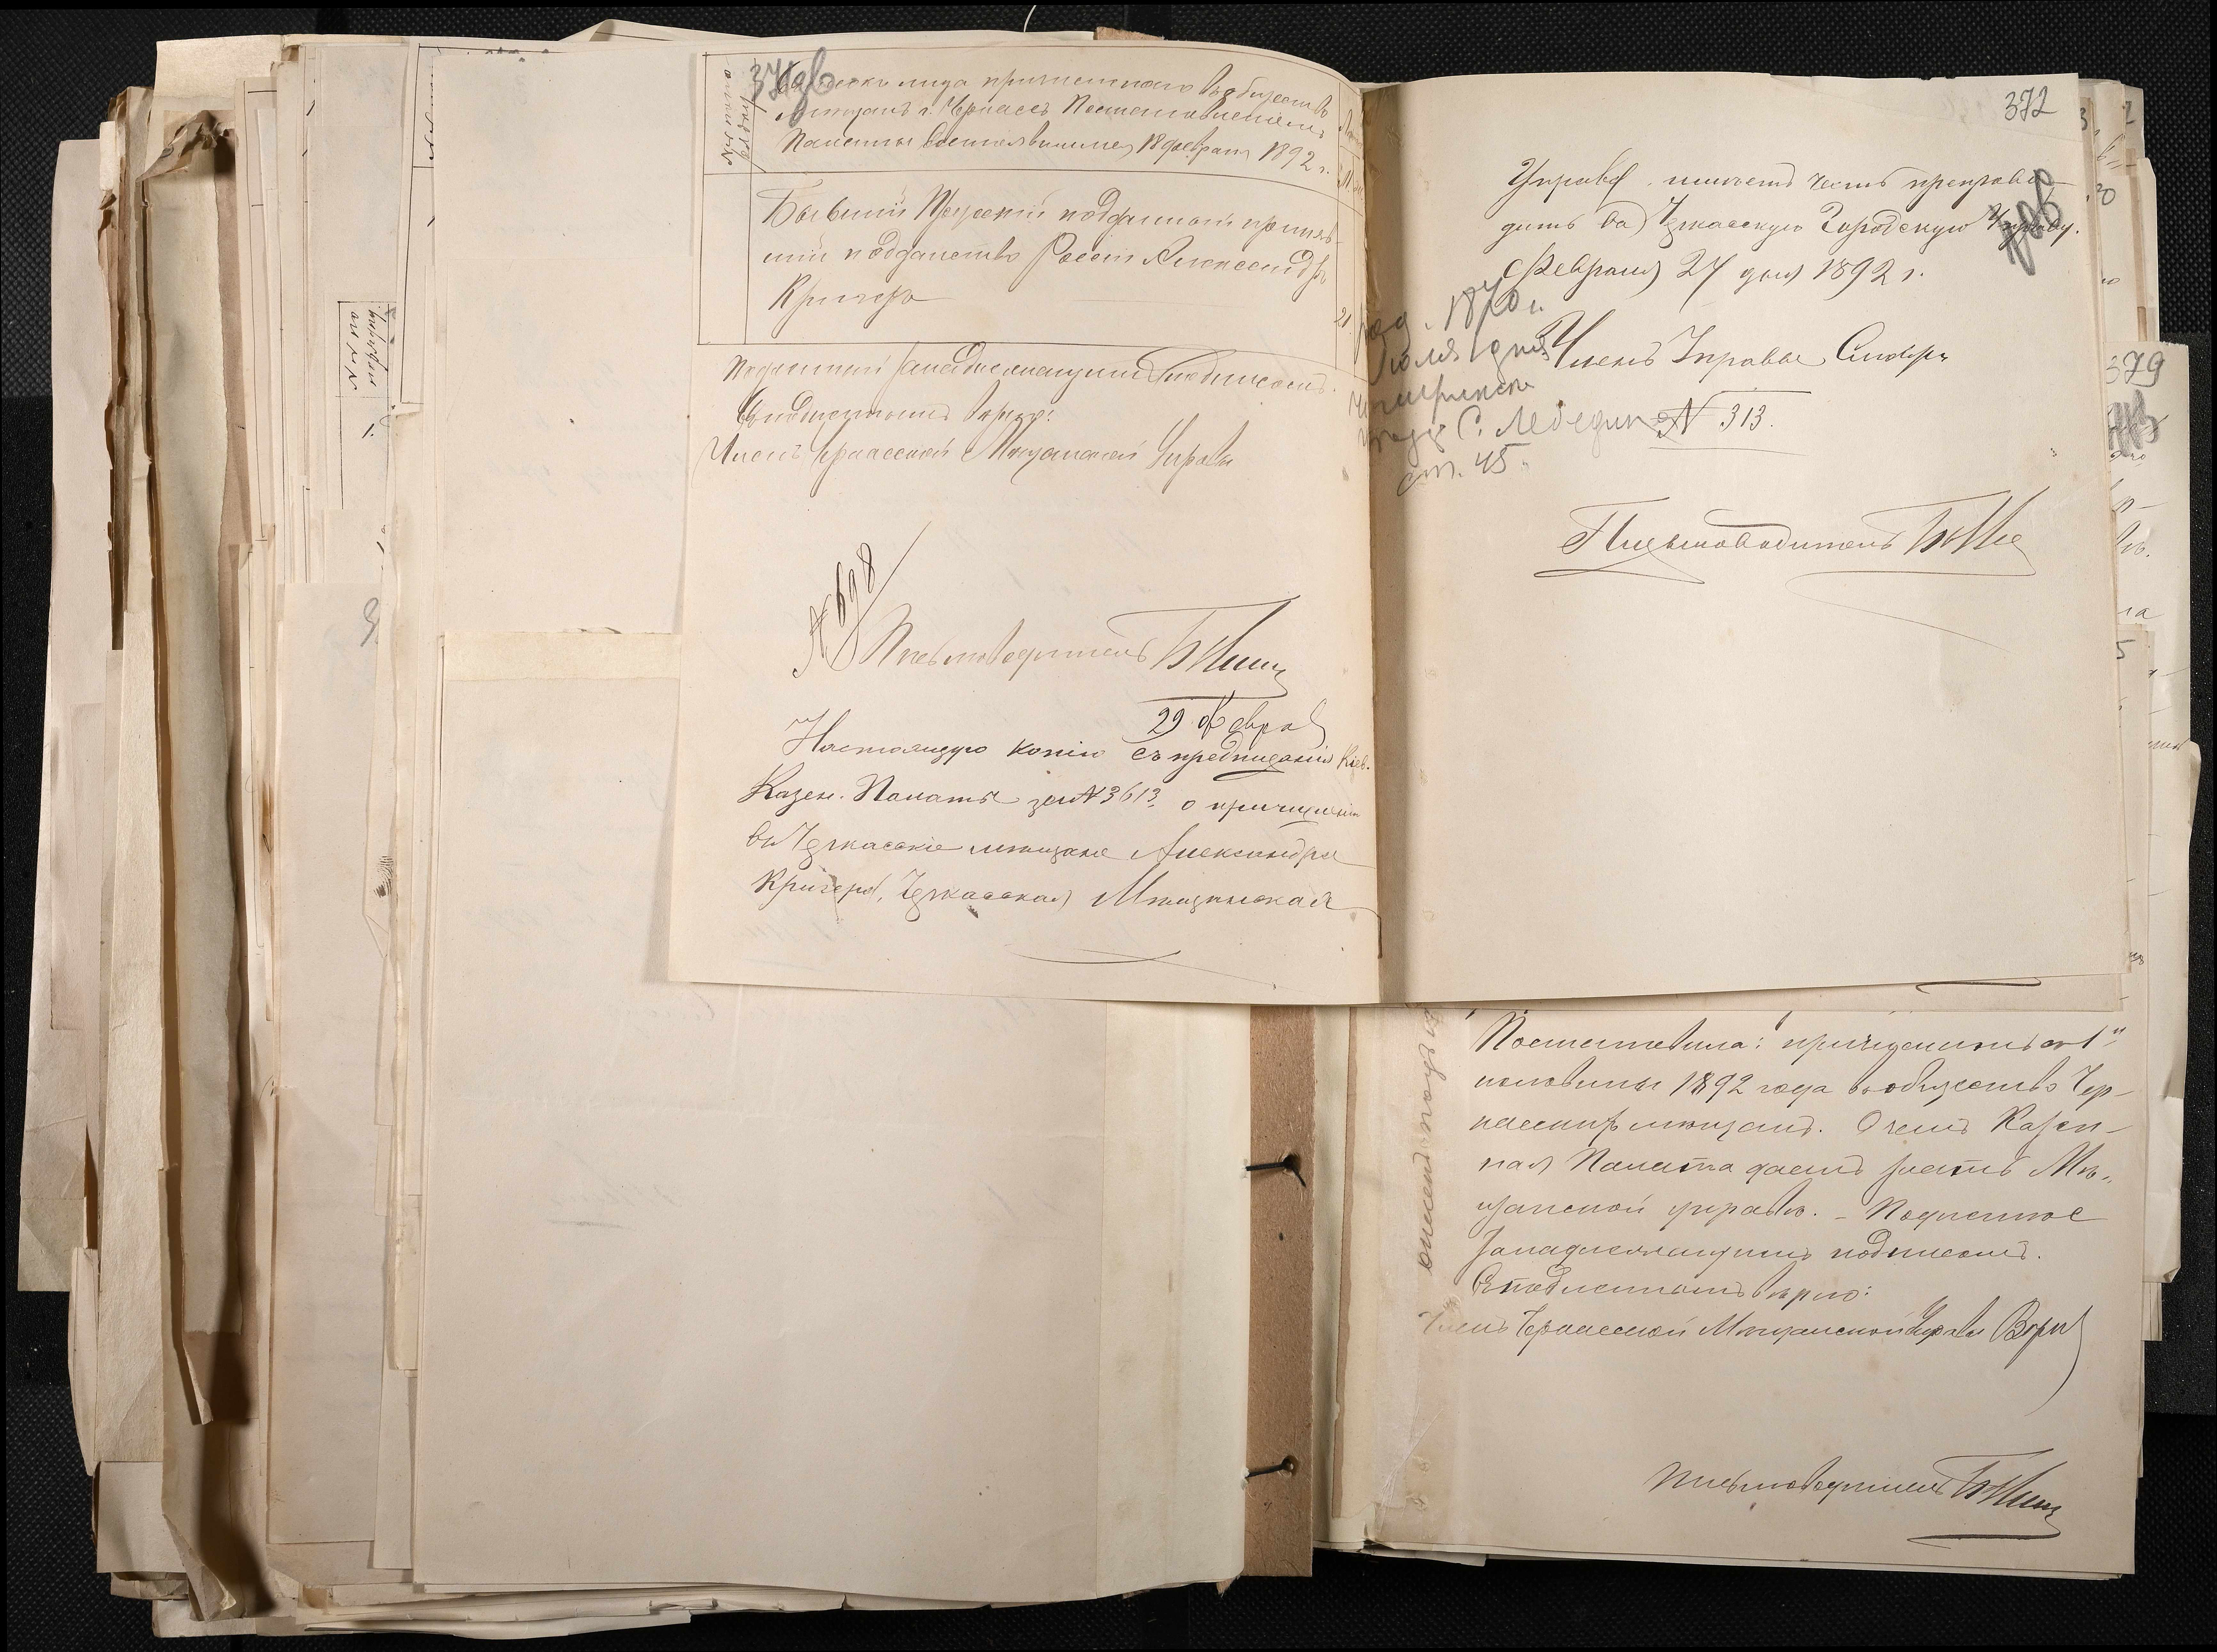 Списокъ лица причисленнаго въ общество
мѣщанъ г. Черкассъ Постановленіемъ
Палаты состоявшимся 18 февраля 1892 г.
Бывшій Прусскій подданный приняв-
шій подданство Россіи Александръ
Кригеръ
Подлинный за надлежащимъ подписомъ.
Съ подлиннымъ вѣрно:
Членъ Черкасской Мѣщанской Управы
№ 698
Письмоводитель
29 Февра
Настоящую копію съ предписанія Кіев.
Казен. Палаты за № 3613, о причисленіи
въ Черкасскіе мѣщане Александра
Кригера, Черкасская Мѣщанская
372
Управа имѣетъ честь препрово-
дить въ Черкасскую Городскую Управу.
Февраля 27 дня 1892 г.
род. 1870 г.
Юля 1 дня
Членъ Управы
Чигиринск
уезде С. Лебедин
№ 313.
ст. 45
Письмоводитель
379
Постановила: причислить съ 1й
половины 1892 года въ общество Чер-
касскихъ мѣщанъ. О чемъ Казен-
ная Палата даетъ знать Мѣ-
щанской управѣ. – Подлинное
за надлежащимъ подписомъ.
Съ подлиннымъ вѣрно:
Членъ Черкасской Мѣщанской Управы
Письмоводитель